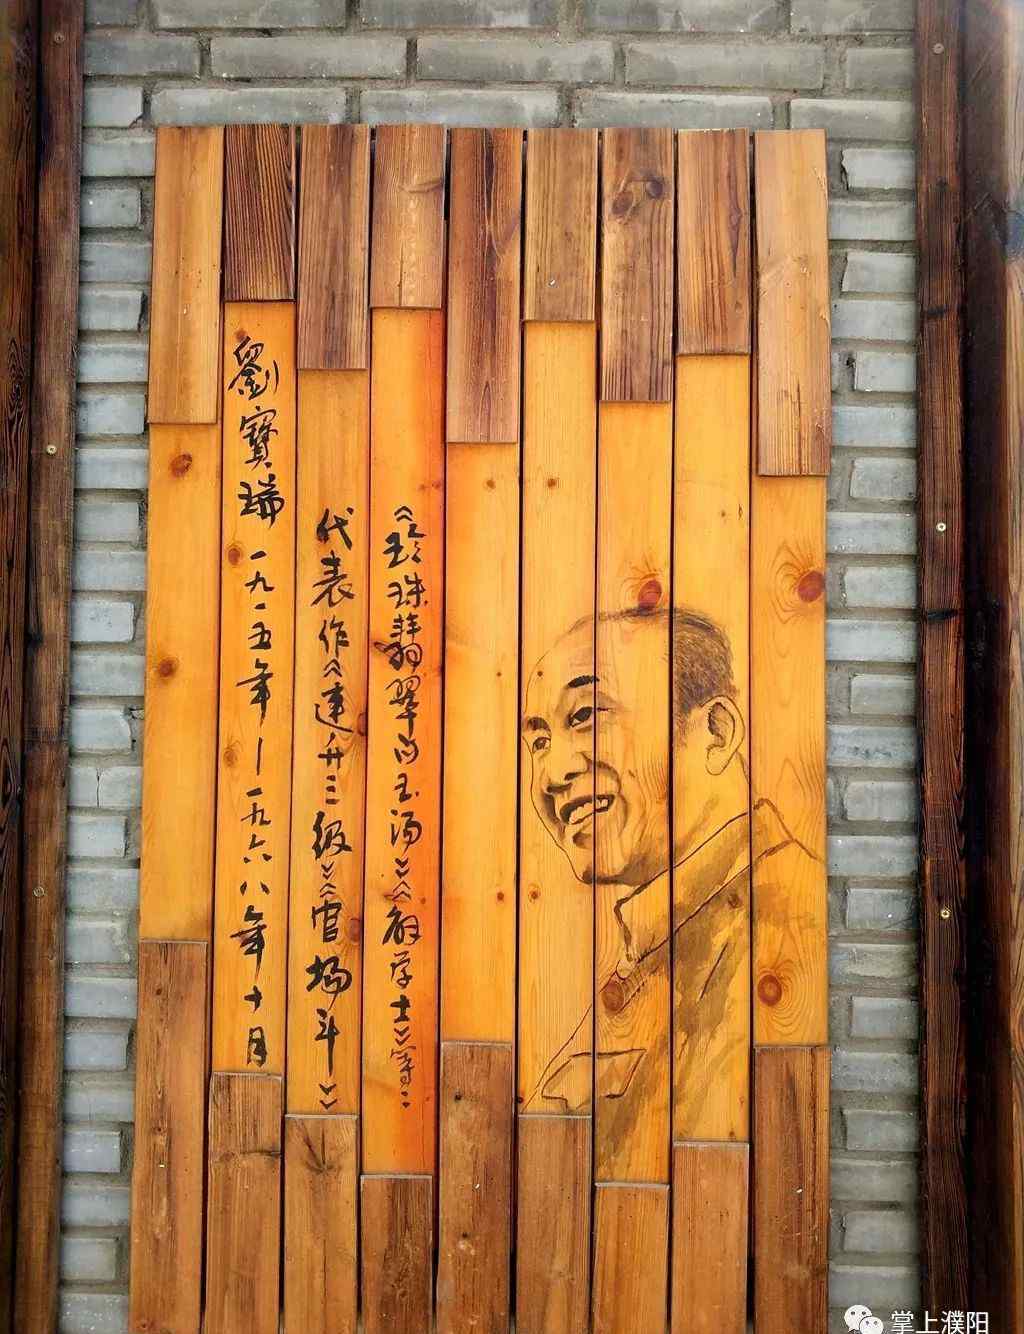 劉寶瑞 一九一五年—一九六八年十月
代表作《連升三级》《官场斗》
《珍珠翡翠白玉汤》《解学士》等:
掌上濮阳